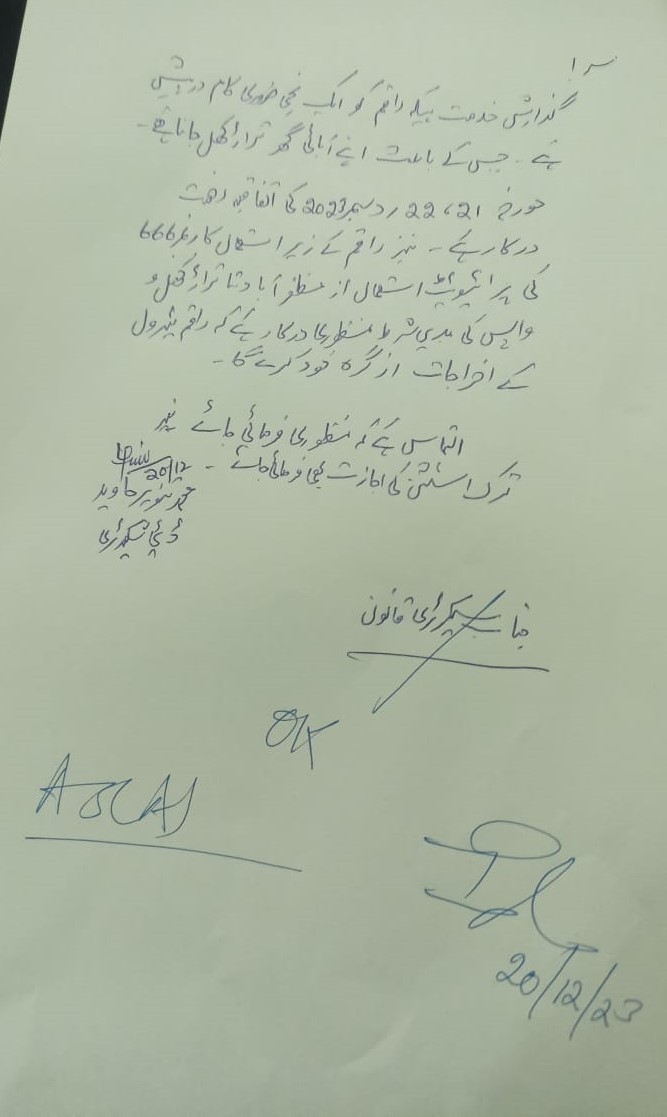 سر!
گذارش خدمت ہیکہ راقم کو ایک نجی ضروری کام درپیش
ہے۔ جس کے باعث اپنے آبائی گھر تراڑکھل جانا ہے۔
مورخہ 21، 22 دسمبر 2023 کی اتفاقیہ رخصت
درکار ہے۔ نیز راقم کے زیر استعمال کار نمبر 666
کی پرائیویٹ استعمال از مظفر آباد تا تراڑکھل و
واپسی کی بدیں شرط منظوری درکار ہے کہ راقم پٹرول
کے اخراجات از گرہ خود کرے گا۔
التماس ہے کہ منظوری فرمائی جائے نیز
ترک اسٹیشن کی اجازت بھی فرمائی جائے۔
20/12
محمد تنویر جاوید
ڈپٹی سیکرٹری
جناب سیکرٹری قانون
OK
20/12/23